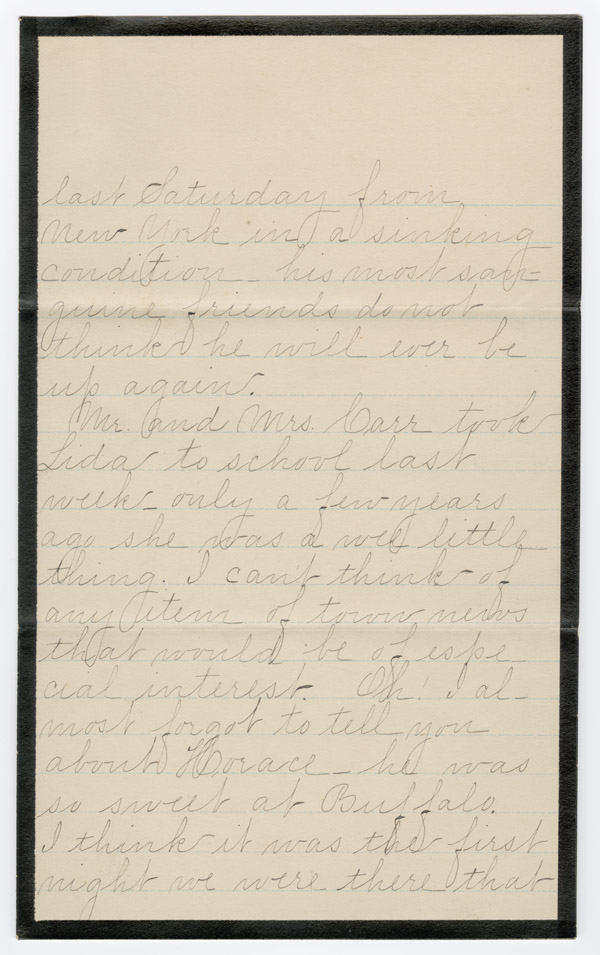 last Saturday from
New York in a sinking
condition - his most san-
guine friends do not
think he will ever be
up again.
Mr. and Mrs. Carr took
Lida to school last
week - only a few years
ago she was a wee little
thing. I can't think of
any item of town news
that would be of espe-
cial interest. Oh! I al-
most forgot to tell you
about Horace - he was
so sweet at Buffalo.
I think it was the first
night we were there that